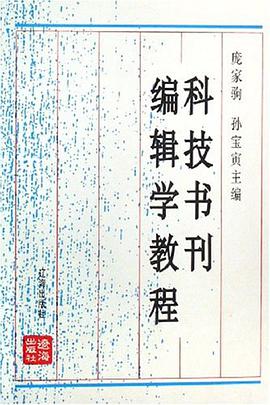 庞家驹 孙宝寅主编
科技书刊
编辑学教程
辽海出版社
辽海
出版社